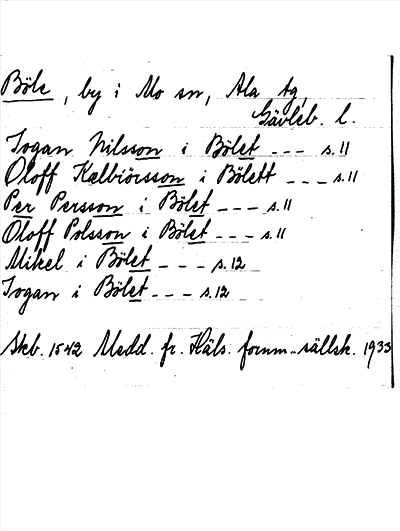 Böle, by i Mo sn, Ala tg,
Gävleb. l.
Jogan Nilsson i Bölet --- s.11
Oloff Kælbiörsson i Bölett --- s.11
Per Persson i Bölet --- s.11
Oloff Polsson i Bölet --- s.11
Mikel i Bölet --- s.12
Jogan i Bölet --- s.12
Skb. 1542 Medd. fr. Häls. fornm.-sällsk. 1933